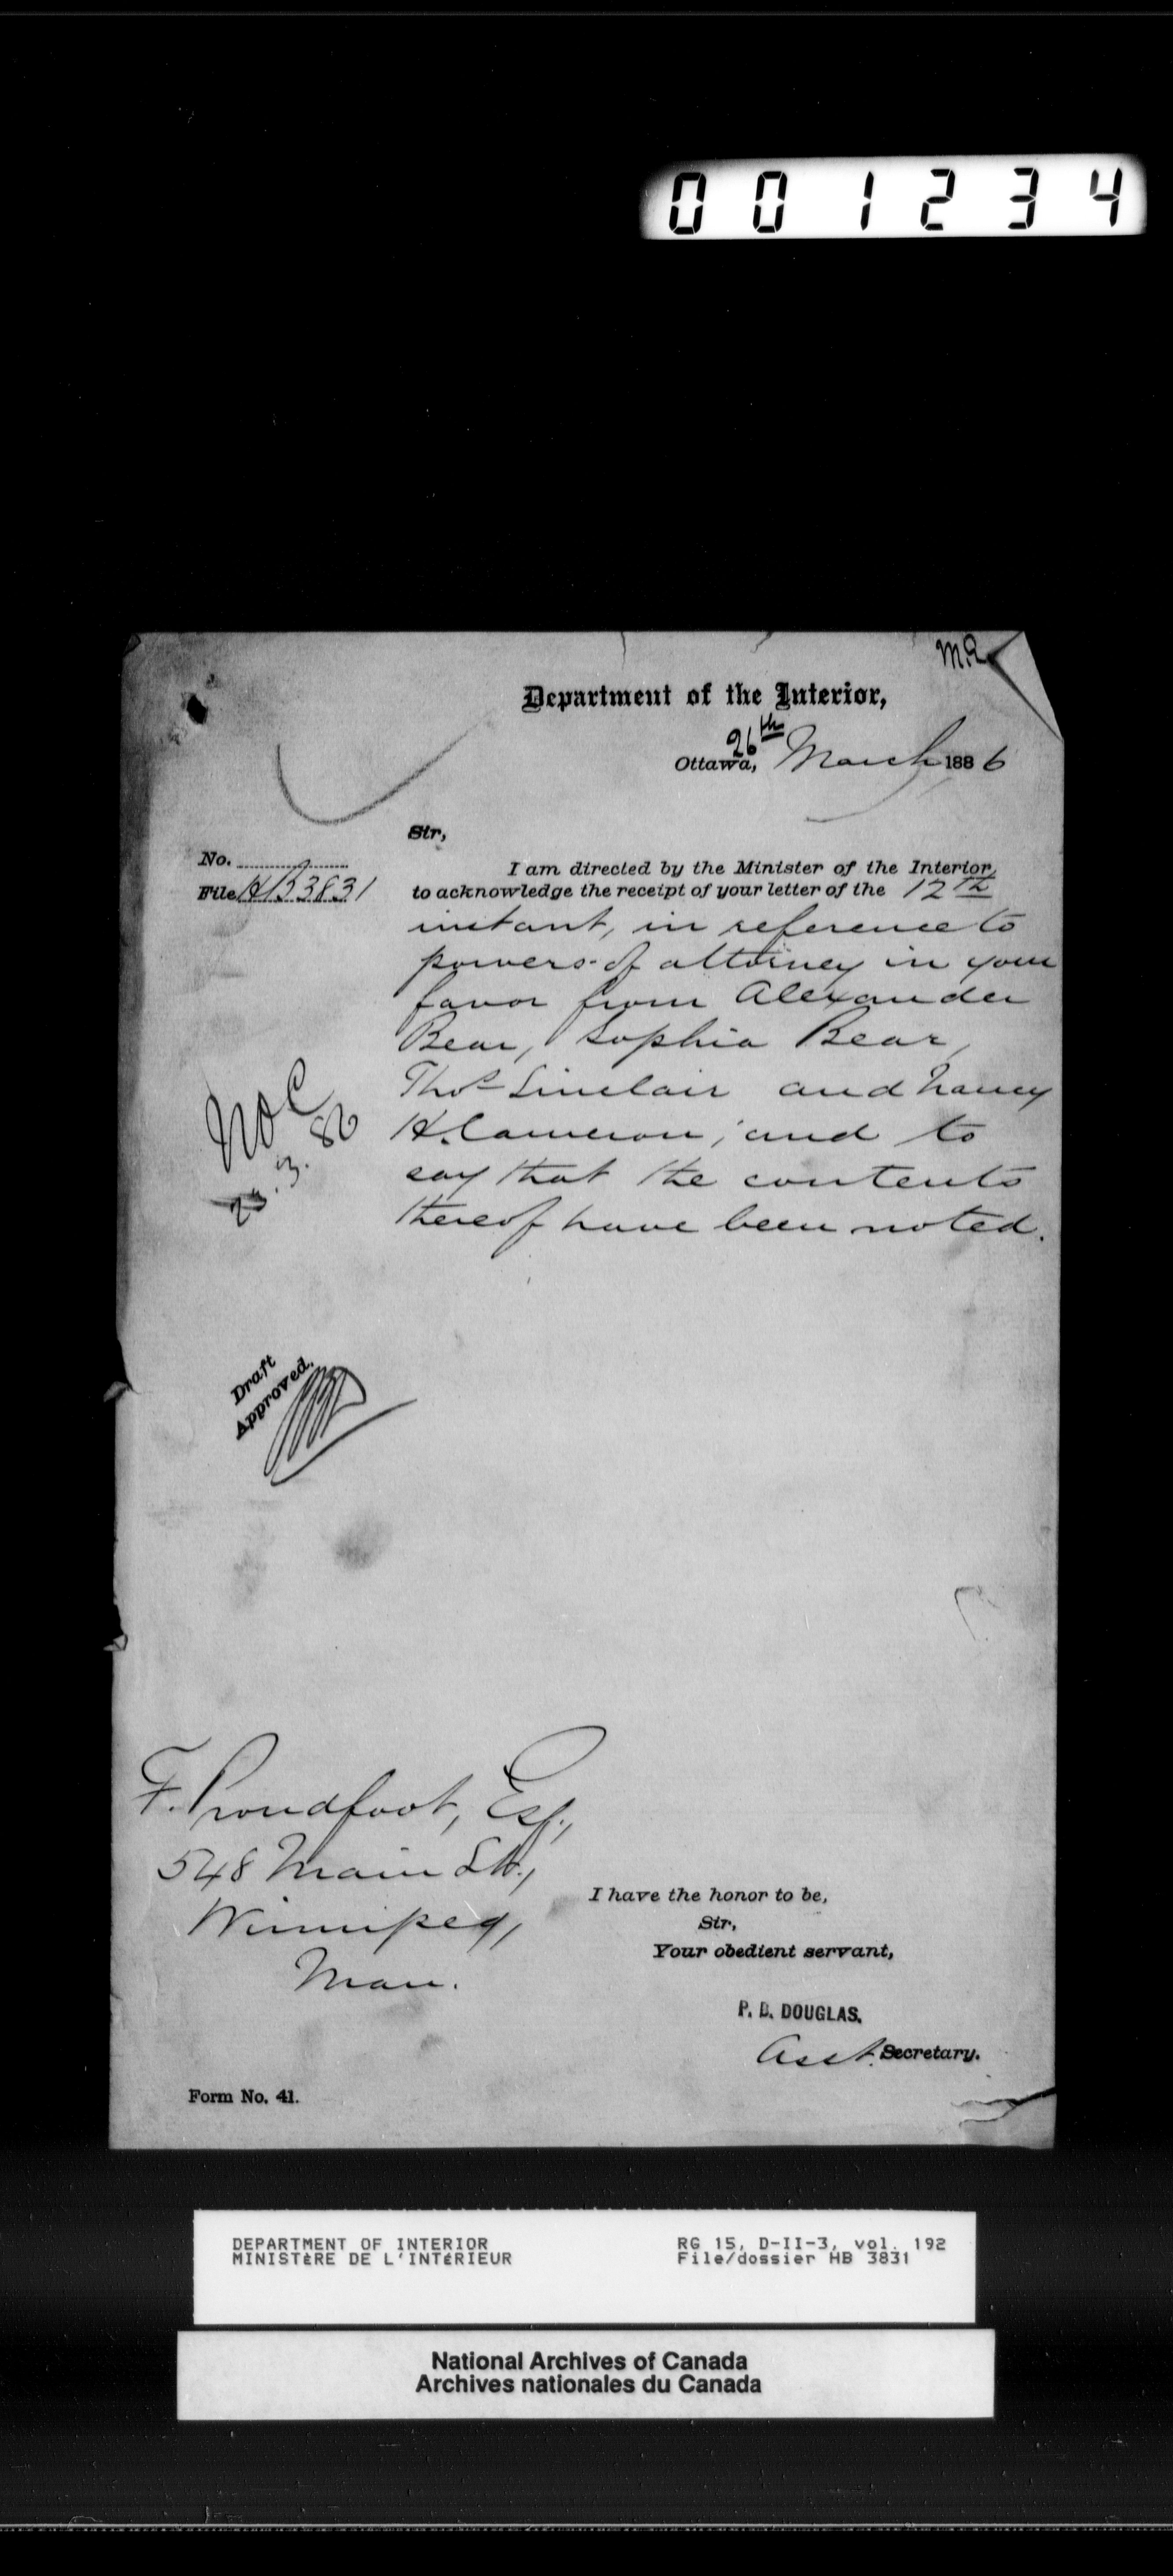 001234
M.R.
Department of the Interior,
Ottawa, 26th March 1886
Sir,
No.
File HB 3831
I am directed by the Minister of the Interior,
to acknowledge the receipt of your letter of the 12th
instant, in reference to
powers of attorney in your
favor from Alexander
Bear, Sophia Bear,
Thos Sinclair and Nancy
H. Cameron; and to
say that the contents
thereof have been noted.
Draft
Approved.
F. Proudfoot, Esq.,
548 Main St.,
Winnipeg,
Man.
I have the honor to be,
Sir,
Your obedient servant,
P. B. DOUGLAS.
Asst. Secretary.
Form No. 41.
DEPARTMENT OF INTERIOR
MINISTÈRE DE L'INTÉRIEUR
RG 15, D-II-3, vol. 192
File/dossier HB 3831
National Archives of Canada
Archives nationales du Canada